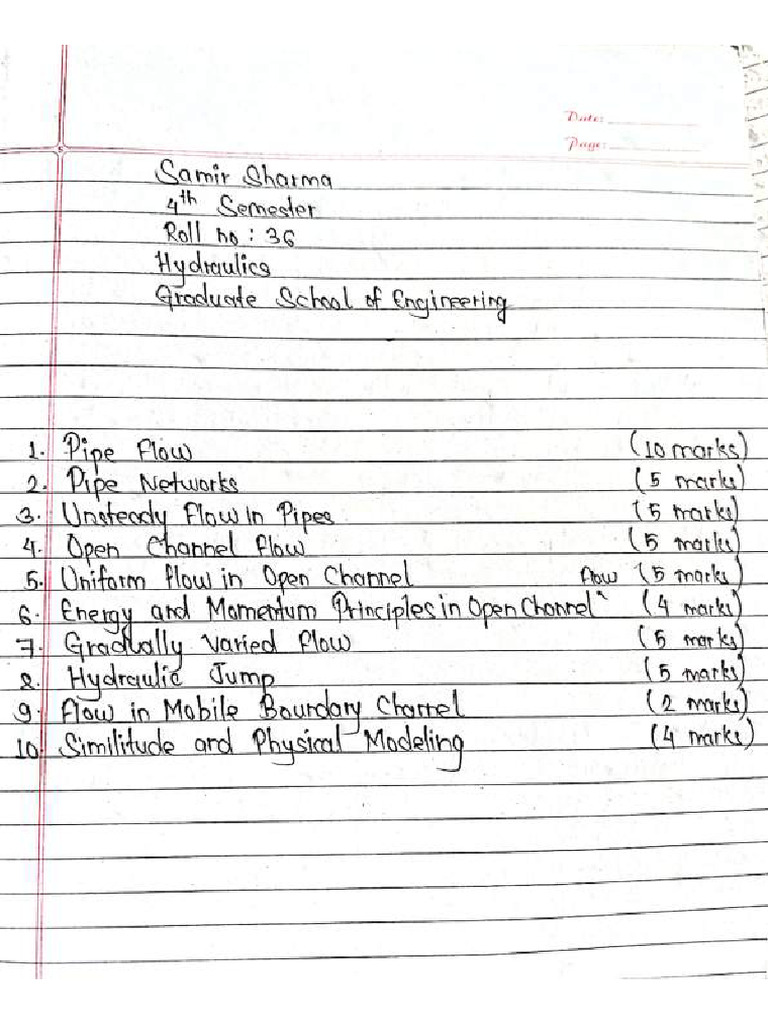 Date:
Page:
Samir Sharma
4th Semester
Roll no: 36
Hydraulics
Graduate School of Engineering
1. Pipe Flow (10 marks)
2. Pipe Networks (5 marks)
3. Unsteady Flow in Pipes (5 marks)
4. Open Channel Flow (5 marks)
5. Uniform flow in Open Channel (5 marks)
6. Energy and Momentum Principles in Open Channel flow (4 marks)
7. Gradually Varied Flow (5 marks)
8. Hydraulic Jump (5 marks)
9. Flow in Mobile Boundary Channel (2 marks)
10. Similitude and Physical Modeling (4 marks)